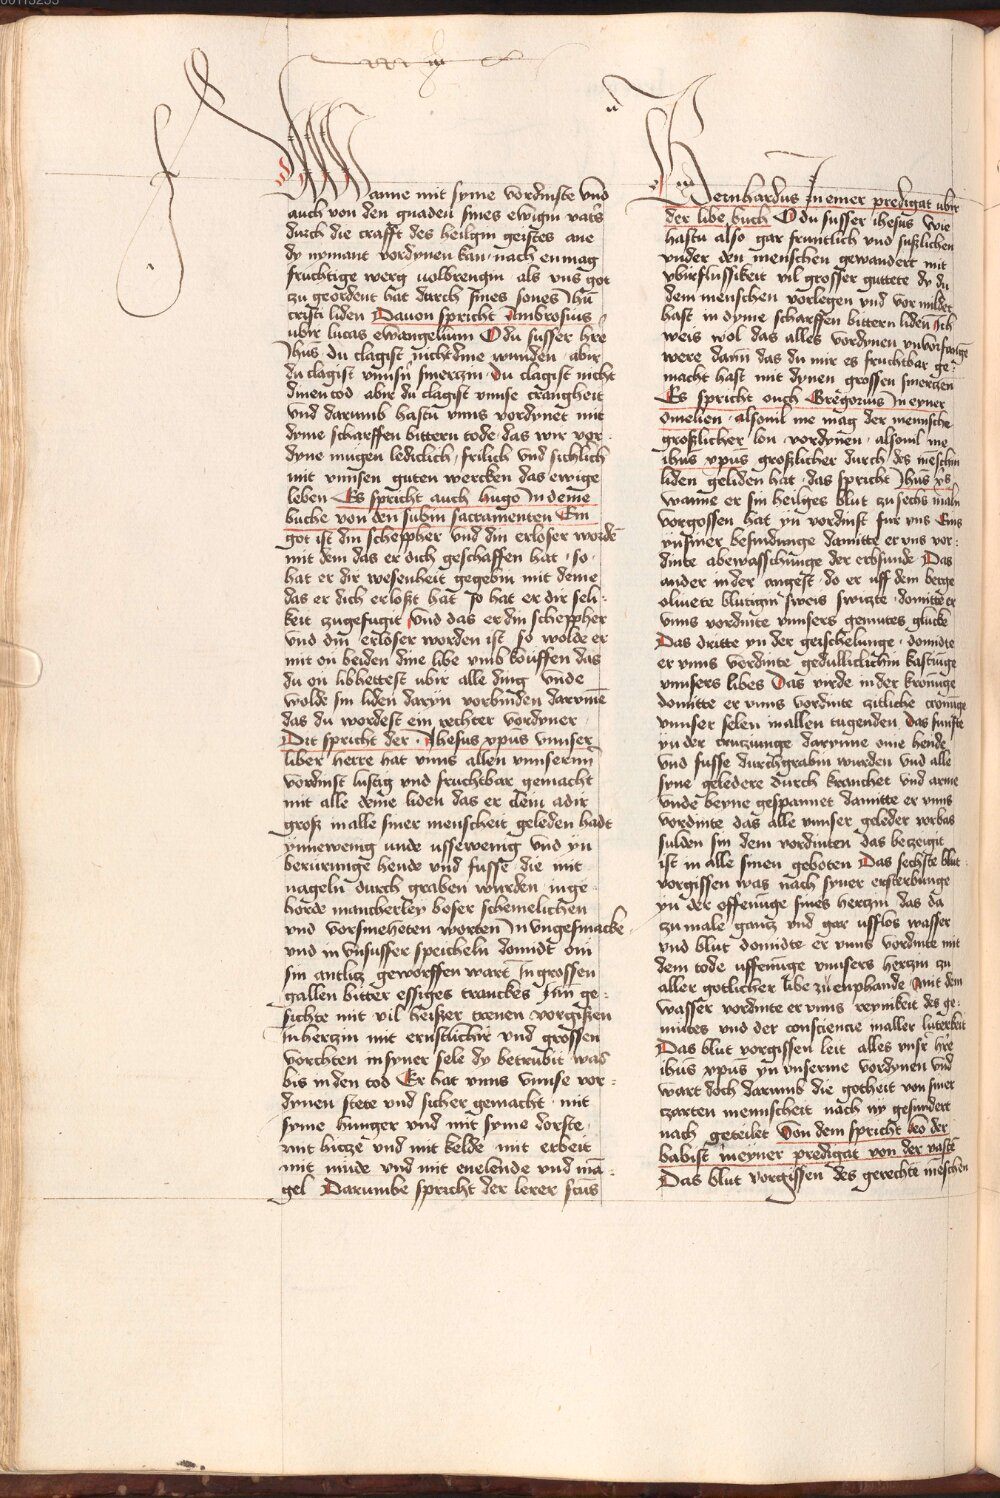 Wanne mit syme vordinste vnd
auch von den gnaden sines ewigin vat's
durch die crafft des heilgin geistes ane
dy nymant vordynen kan nach en mag
fruchtige werg volbrengin als vns got
zu geordent hat durch sines sones Jhu
cristi liden Dauon spricht Ambrosius
ubir lucas ewangelium O du susser hre
Jhus du clagist nicht dine wunden abir
du clagist vnnsn smerczin du clagist nicht
dinen tod abir du clagist vnnse crangheit
vnd darumb hastu vnns vordynet mit
dyme scharffen bittern tode das wir vor
dyne mugen lediclich frilich vnd sichlich
mit vnnsen guten wercken das ewige
leben Es spricht auch hugo in deme
buche von den subin sacramenten Ein
got ist din schephher vnd din erloser wordē
mit dem das er dich geschaffen hat so
hat er dir wesenheit gegebin mit deme
das er dich erloßt hat so hat er dir seli
keit zugefugit vnd das er din schephher
vnd din erloser worden ist so wolde er
mit on beiden dine libe vmb kouffen das
du on libhettest ubir alle ding vnde
wolde sin liden daryn vorbinden darvmē
das du wordest ein rechter vordyner
Dit spricht der Jhesus xpus vnnser
liber herre hat vnns allen vnnserm
vordinst lustig vnd fruchtbar gemacht
mit alle deme liden das er clein adir
groß in alle siner menscheit geleden hadt
ynnewenig unde ussewenig vnd yn
berurunge hende vnd fusse die mit
nageln durch graben wurden in ge
horde mancherley boser schemelichen
vnd vorsmeheten worten in vngesmacke
vnd in vnsusser speicheln domidt om
sin antlicz geworffen wart in grossen
gallen bitter essiges tranckes Inn ge
sichte mit vil heißer trenen vorgißen
in herzin mit ernstlichir vnd grossen
vorchten in syner sele dy betrubit was
bis in den tod Er hat vnns vnnse vor
dynen stete vnd sicher gemacht mit
syme hunger vnd mit syme dorste
mit hicze vnd mit kelde mit erbeit
mit mude vnd mit enelende vnd mā
gel Darumbe spricht der lerer scūs
Bernhardus In einer predigat ubir
der libe buch O du susser ihesus wie
hastu also gar fruntlich vnd sußlichen
vnder den menschen gewandert mit
vbirflussikeit vil grosser guttete dy du
dem menschen vorlegen vnd vor mildet
hast in dyme scharffen bittern liden Ich
weis wol das alles vordynen vnvorfange
were dann das du mir es fruchtbar ge
macht hast mit dynen grossen smerczen
Es spricht ouch Gregorius in eyner
omelien alsouil me mag der mennsche
großlicher lon vordynen alsouil me
ihus xpus großlicher durch des meschin
liden geliden hat das spricht Jhus
wanne er sin heiliges blut zu sechs maln
vorgossen hat yn vordinst fur vns Eins
yn siner besnidunge damitte er vns vor
dinte abewasschunge der erbsunde Das
ander in der angest do er uff dem berge
oliuete blutigin sweis swiczte domitte er
vnns vordinte vnnsers gemutes glucke
Das dritte yn der geischelunge domidte
er vnns verdinte gedullicliichin kastiuge
vnnsers libes Das virde in der kronūge
domitte er vnns vordinte zitliche cronūge
vnnser selen in allen tugenden das funfte
yn der cruczunge darynne onie hende
vnd fusse durchgrabin wurden vnd alle
syne geledere durch kranchet vnd arme
vnde beyne gespannet damitte er vnns
vordinte das alle vnnser geleder vorbas
sulden sin dem vordinten das beczeigit
ist in alle sinen geboten Das sechste blut
vorgissen was nach syner ersterbunge
yn der offenūge sines herczin das da
zu male ganz vnd gar ufflos wasser
vnd blut domidte er vnns vordinte mit
dem tode uffenūge vnnsers herczin zu
aller gotlicher libe zu enphande mit dem
wasser vordinte er vnns reynikeit des ge
mutes vnd der consciencie in aller luterkeit
Das blut vorgissen leit alles vnsr hre
ihus xpus yn vnserme vordynen vnd
wart doch darumb die gotheit von siner
czarten mennscheit nach ny gesundert
nach geteilet Von dem spricht leo der
babist in eyner predigat von der vaste
Das blut vorgissen des gerechte meschen